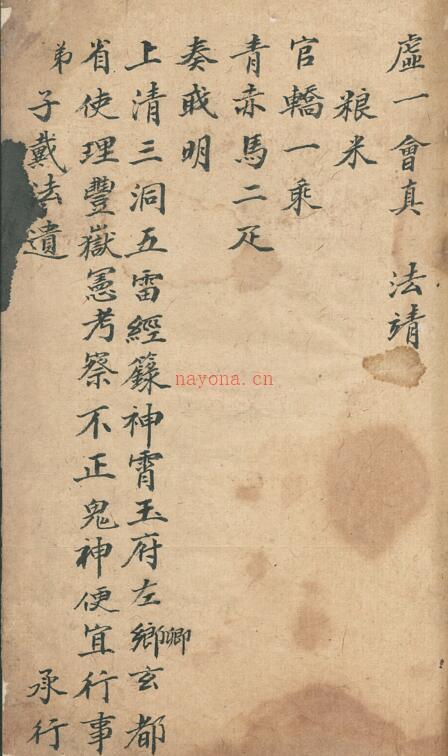 虛一會真 法靖
粮米
官轎一乘
青赤馬二疋
奏戓明
上清三洞五雷經籙神霄玉府左鄉卿玄都
省使理豐嶽憲考察不正鬼神便宜行事
弟子戴法遺 承行
nayona.cn